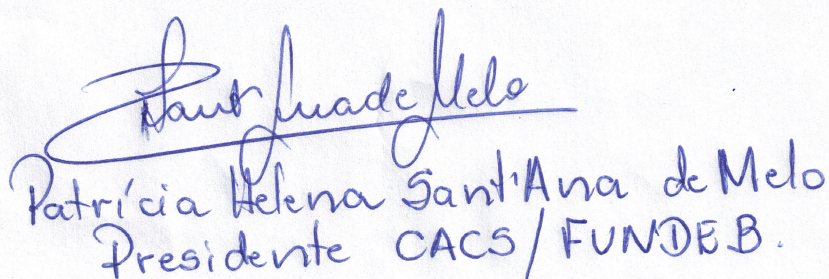 Sant'Ana de Melo
Patrícia Helena Sant'Ana de Melo
Presidente CACS/FUNDEB.